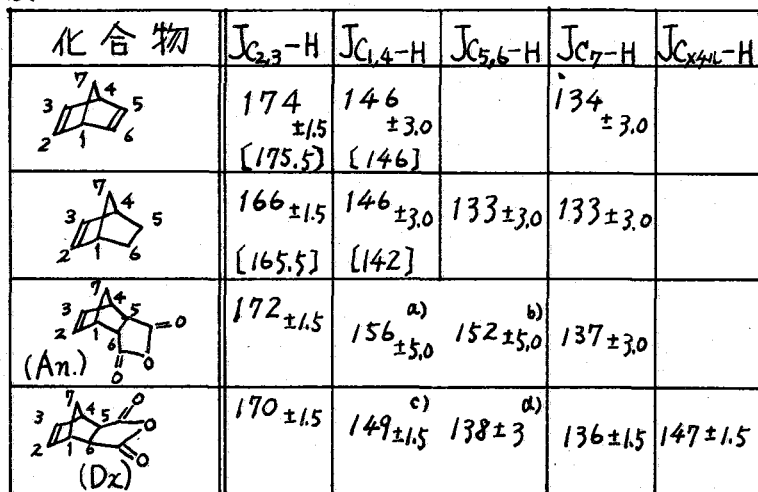 化合物 JC2,3-H JC1,4-H JC5,6-H JC7-H
7 4 3 5 2 1 6 174 ±1.5 [175.5] 146 ±3.0 [146] 134 ±3.0
7 4 3 5 2 1 6 166 ±1.5 [165.5] 146 ±3.0 [142] 133 ±3.0 133 ±3.0
7 4 3 5 2 1 6 O O O (An.) 172 ±1.5 156 ±5.0 a) 152 ±5.0 b) 137 ±3.0
7 4 3 5 2 1 6 O O O (Dx) 170 ±1.5 149 ±1.5 c) 138 ±3 d) 136 ±1.5 147 ±1.5